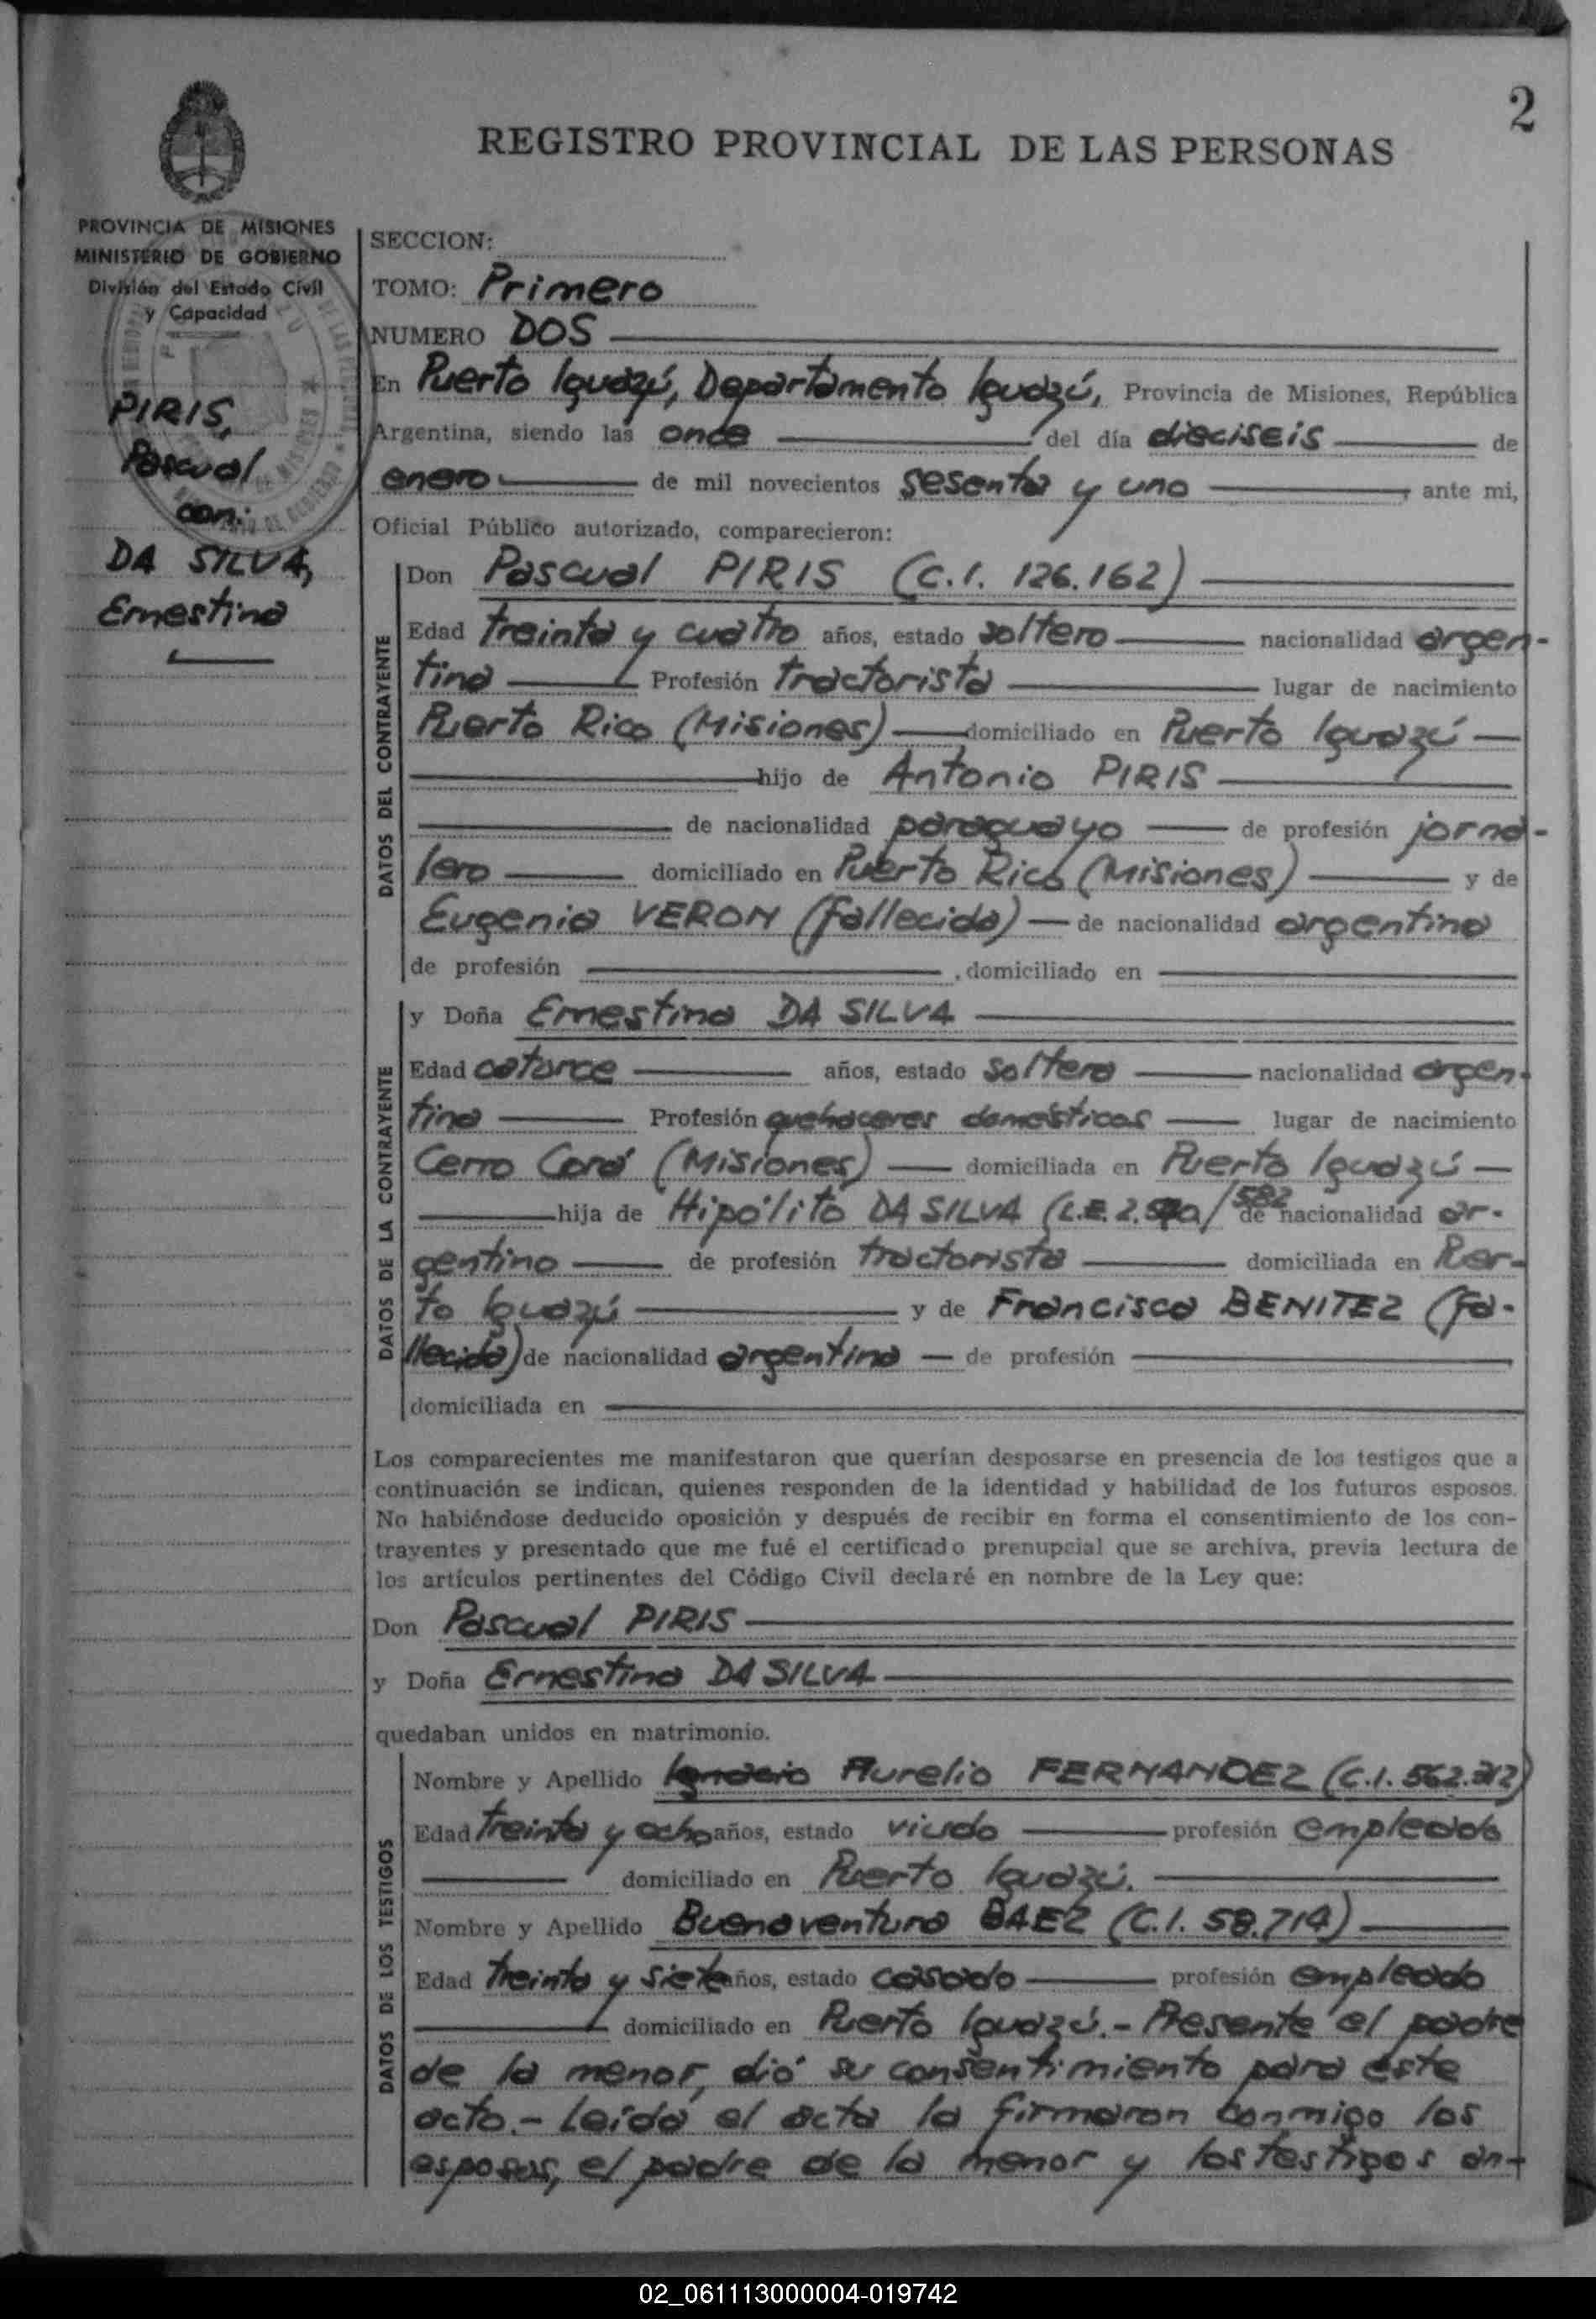 2
REGISTRO PROVINCIAL DE LAS PERSONAS
PROVINCIA DE MISIONES
MINISTERIO DE GOBIERNO
División del Estado Civil
y Capacidad
PIRIS,
Pascual
con:
DA SILVA,
Ernestina
SECCION:
TOMO: Primero
NUMERO DOS
En Puerto Iguazú, Departamento Iguazú, Provincia de Misiones, República
Argentina, siendo las once del día dieciseis de
enero de mil novecientos sesenta y uno ante mi,
Oficial Público autorizado, comparecieron:
DATOS DEL CONTRAYENTE
Don Pascual PIRIS (C.I. 126.162)
Edad treinta y cuatro años, estado soltero nacionalidad argen-
tina Profesión tractorista lugar de nacimiento
Puerto Rico (Misiones) domiciliado en Puerto Iguazú
hijo de Antonio PIRIS
de nacionalidad paraguayo de profesión jorna-
lero domiciliado en Puerto Rico (Misiones) y de
Eugenia VERON (fallecida) de nacionalidad argentina
de profesión , domiciliado en
DATOS DE LA CONTRAYENTE
y Doña Ernestina DA SILVA
Edad catorce años, estado soltera nacionalidad argen-
tina Profesión quehaceres domésticos lugar de nacimiento
Cerro Corá (Misiones) domiciliada en Puerto Iguazú
hija de Hipólito DA SILVA (L.E. 582 de nacionalidad ar-
gentino de profesión tractorista domiciliada en Puer-
to Iguazú y de Francisca BENITEZ (fa-
llecida) de nacionalidad argentina de profesión
domiciliada en
Los comparecientes me manifestaron que querían desposarse en presencia de los testigos que a
continuación se indican, quienes responden de la identidad y habilidad de los futuros esposos.
No habiéndose deducido oposición y después de recibir en forma el consentimiento de los con-
trayentes y presentado que me fué el certificado prenupcial que se archiva, previa lectura de
los artículos pertinentes del Código Civil declaré en nombre de la Ley que:
Don Pascual PIRIS
y Doña Ernestina DA SILVA
quedaban unidos en matrimonio.
DATOS DE LOS TESTIGOS
Nombre y Apellido Aurelio FERNANDEZ (C.I.
Edad treinta y ocho años, estado viudo profesión empleado
domiciliado en Puerto Iguazú.
Nombre y Apellido Buenaventura BAEZ (C.I. 58.714)
Edad treinta y siete años, estado casado profesión empleado
domiciliado en Puerto Iguazú.- Presente el padre
de la menor, dió su consentimiento para este
acto.- Leída el acta la firmaron conmigo los
esposos, el padre de la menor y los testigos an-
02_061113000004-019742